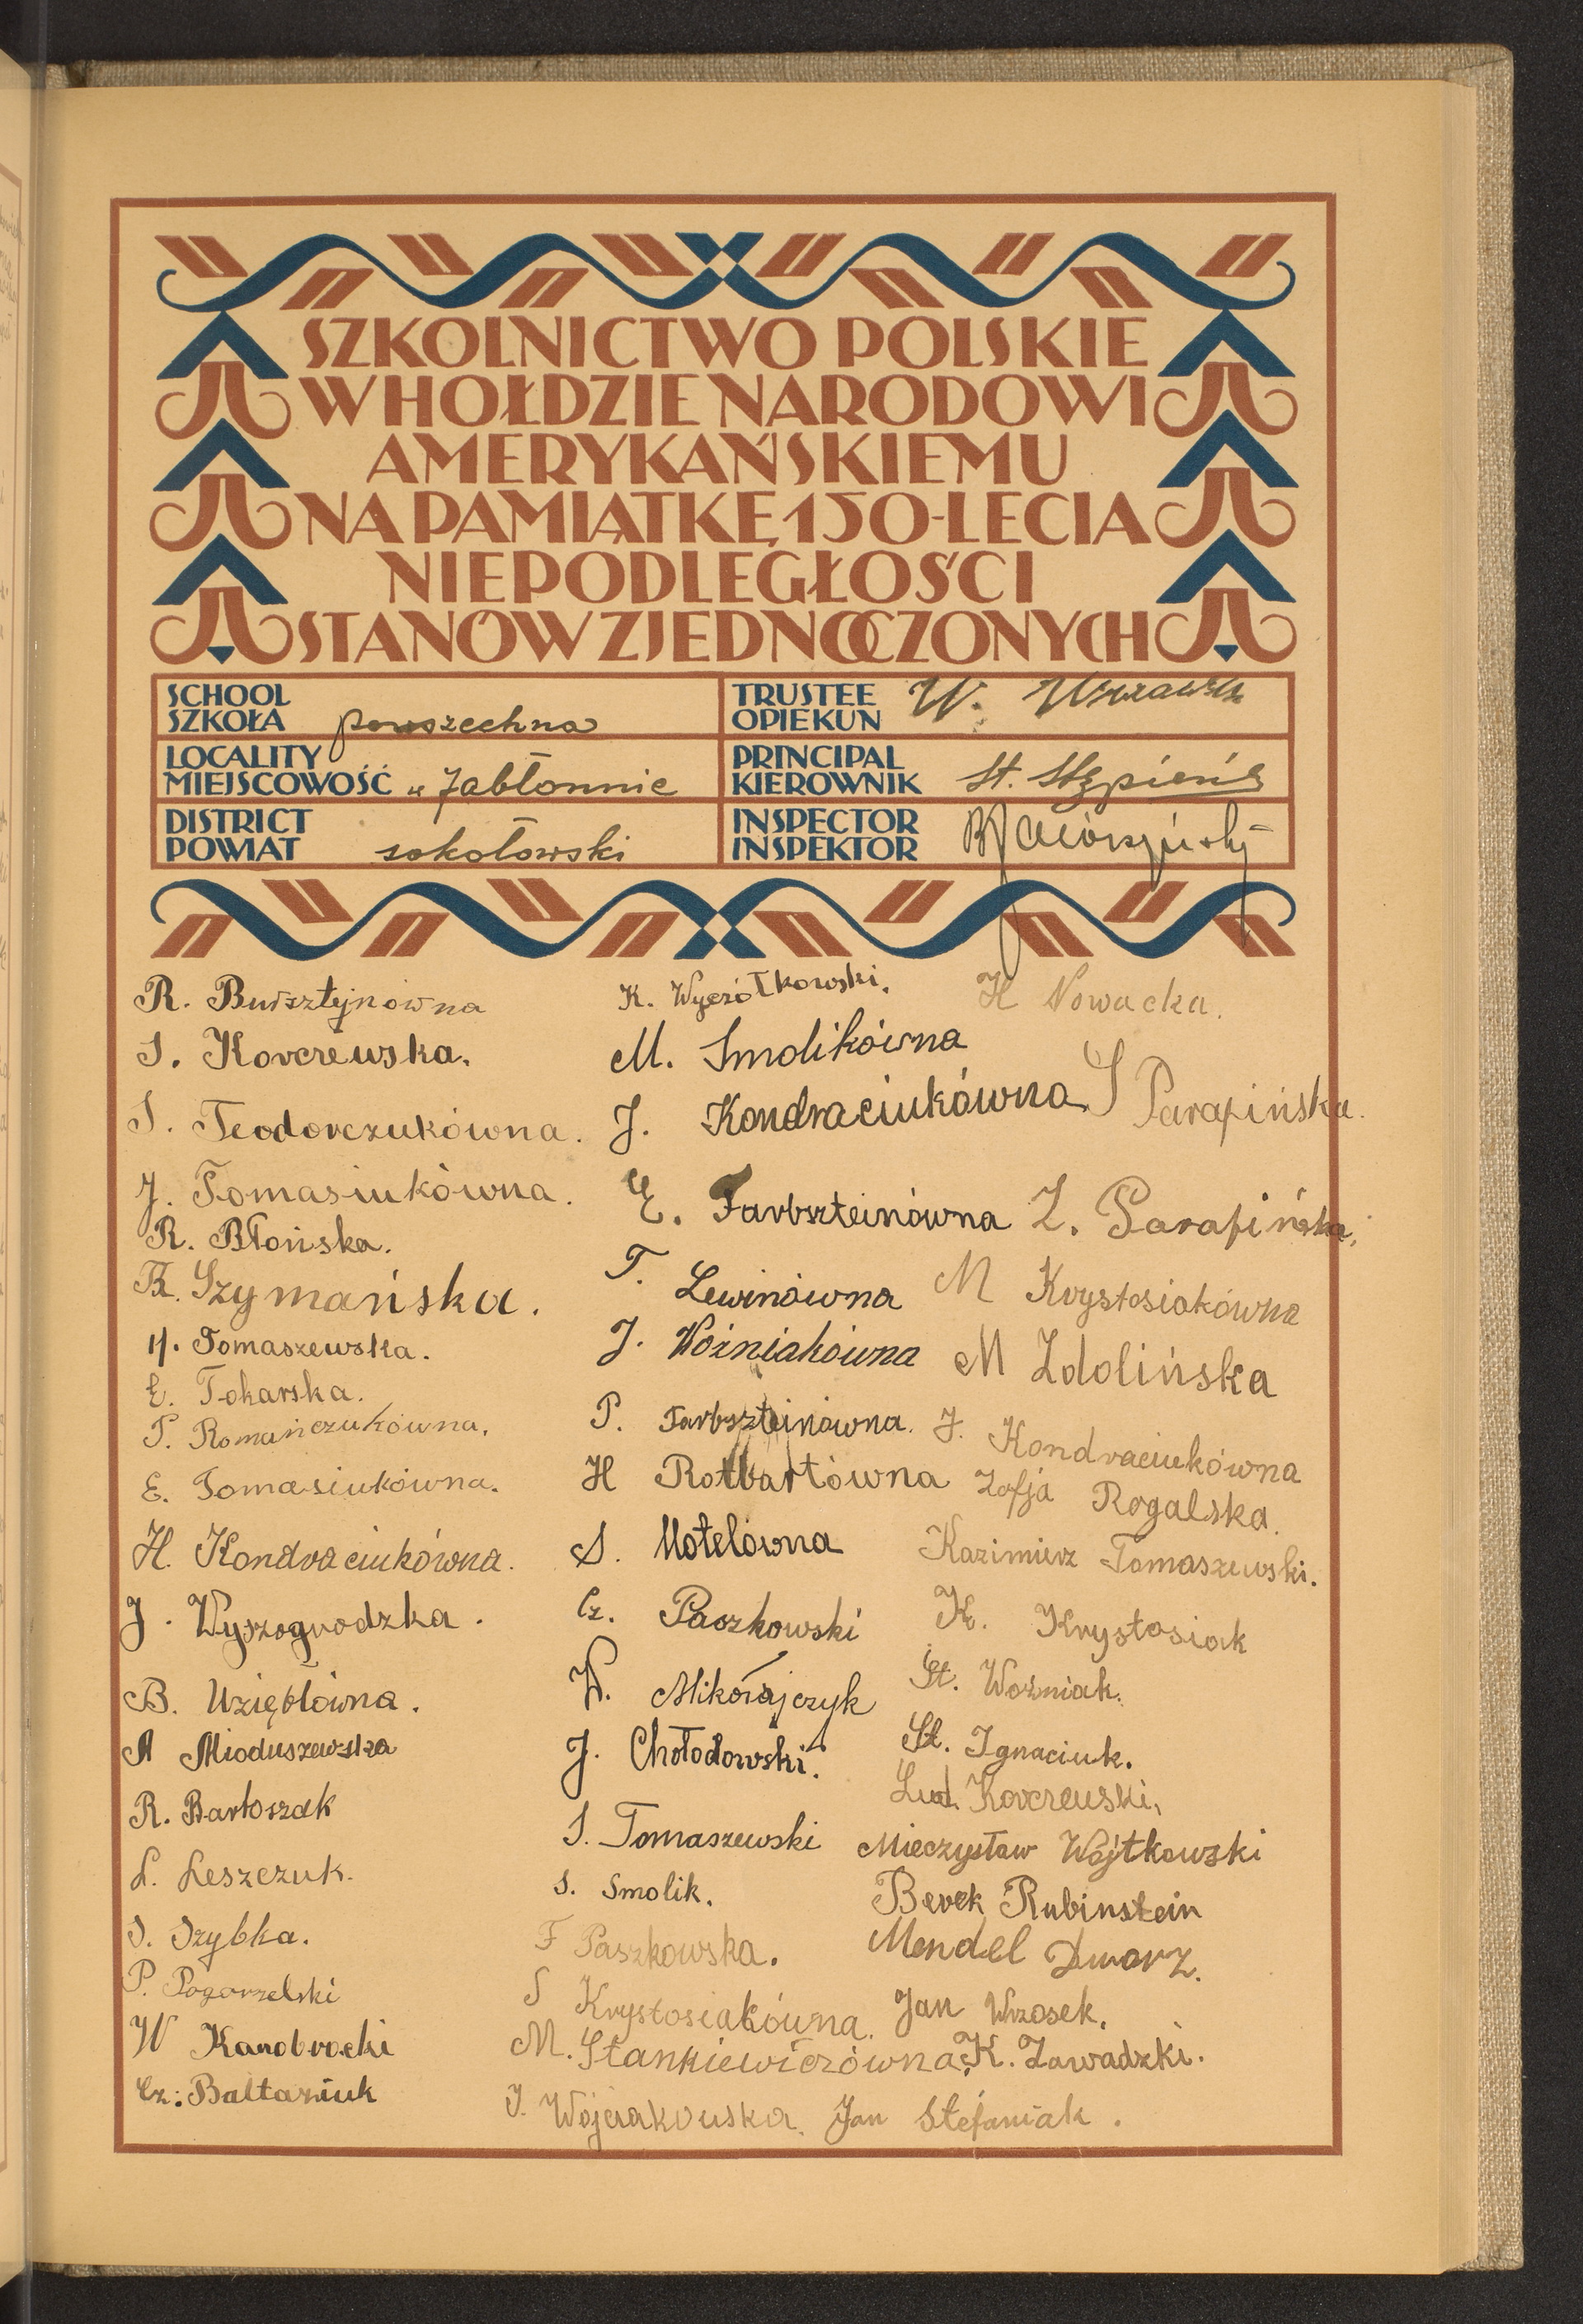 SZKOLNICTWO POLSKIE
W HOŁDZIE NARODOWI
AMERYKAŃSKIEMU
NA PAMIĄTKĘ 150-LECIA
NIEPODLEGŁOŚCI
STANÓW ZJEDNOCZONYCH
SCHOOL
SZKOŁA powszechna
TRUSTEE
OPIEKUN W.
LOCALITY
MIEJSCOWOŚĆ w Jabłonnie
PRINCIPAL
KIEROWNIK St. Stępień
DISTRICT
POWIAT sokołowski
INSPECTOR
INSPEKTOR
R. Bursztejnówna
S. Korczewska.
S. Teodorczukówna.
J. Tomasiukówna.
R. Błońska.
R. Szymańska.
H. Tomaszewska.
E. Tokarska.
P. Romańczukówna.
E. Tomasiukówna.
H. Kondraciukówna.
J. Wyszogrodzka.
B. Uziębłówna.
A Mioduszewska
R. Bartoszek
L. Leszczuk.
S. Szybka.
P. Pogorzelski
W Kanobrocki
Cz. Baltaziuk
K. Wyczółkowski.
M. Smolikówna
J. Kondraciukówna
E. Farbszteinówna
T. Lewinówna
J. Woźniakówna
P. Farbszteinówna.
H Rotbartówna
S. Motelówna
Cz. Paszkowski
W. Mikołajczyk
J. Chołodowski.
S. Tomaszewski
S. Smolik.
F Paszkowska.
S Krystosiakówna.
M. Stankiewiczówna.
J. Wojciakowska.
K Nowacka.
S Parafińska.
Z. Parafińska.
M Krystosiakówna
M Zdolińska
J. Kondraciukówna
Zofja Rogalska.
Kazimierz Tomaszewski.
K. Krystosiak
St. Woźniak.
St. Ignaciuk.
Lud. Korczewski.
Mieczysław Wojtkowski
Berek Rubinstein
Mendel Dworz.
Jan Wrzosek.
K. Zawadzki.
Jan Stefaniak.